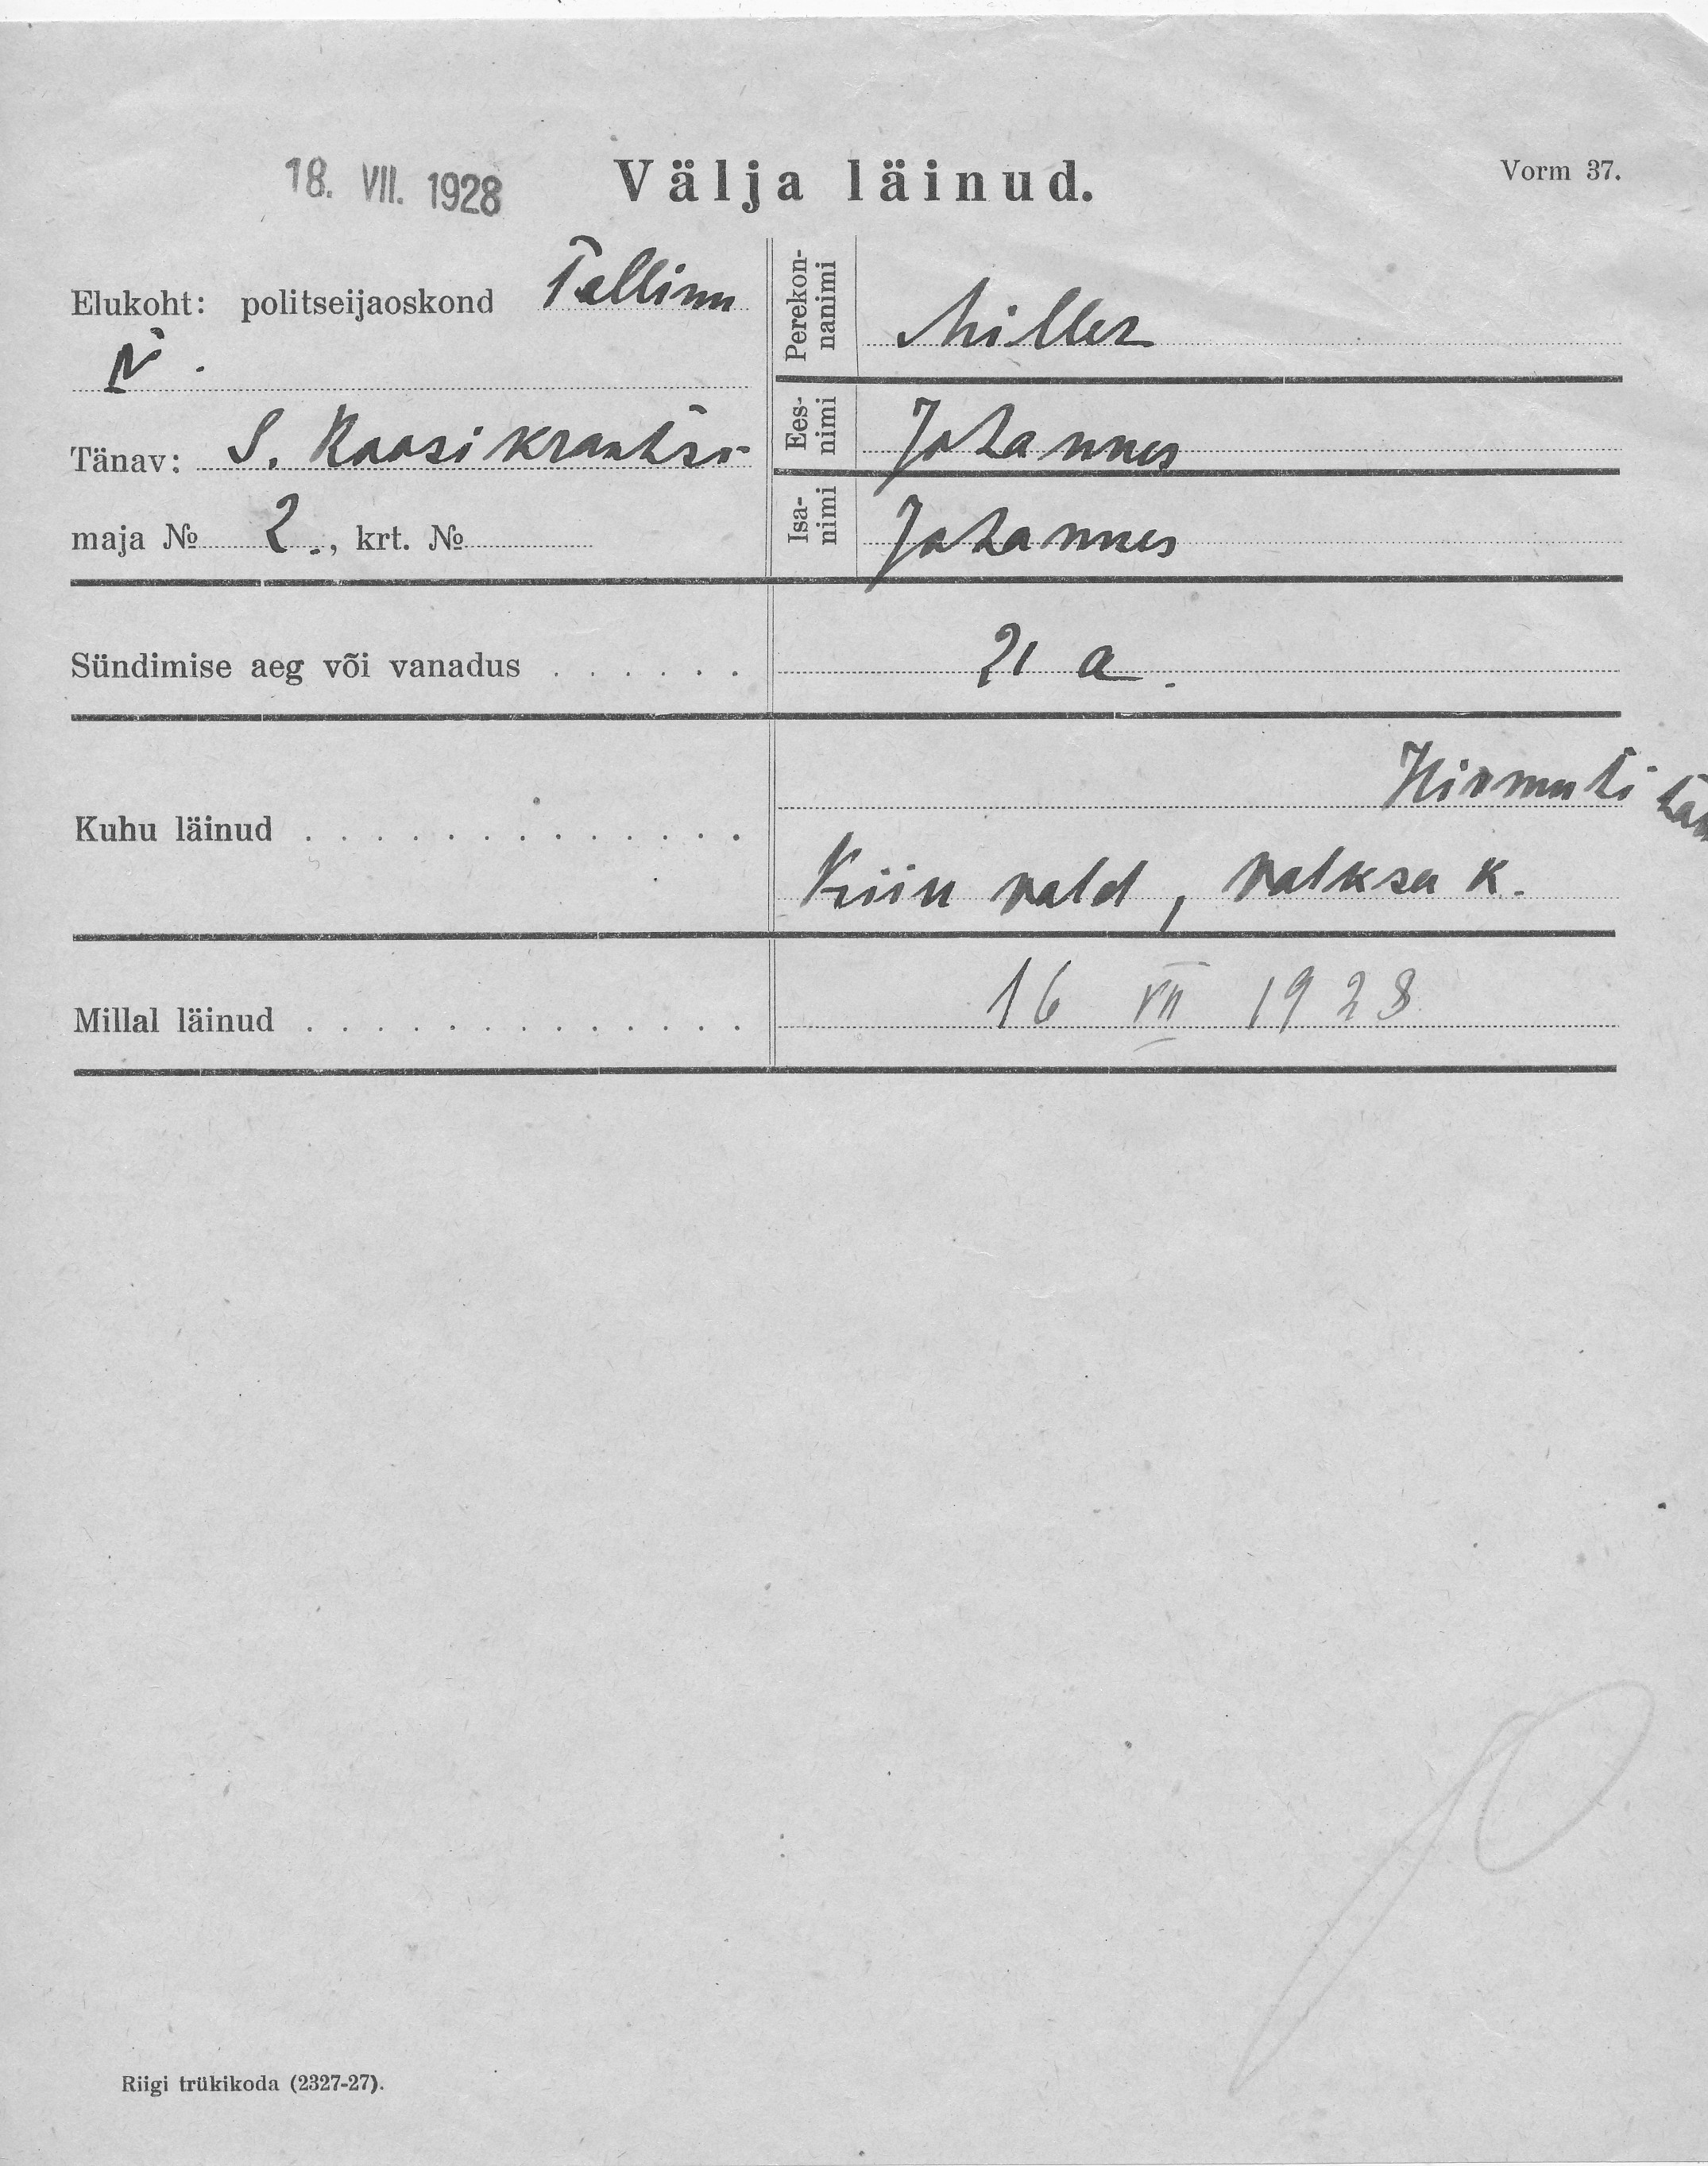 18. VII. 1928
Välja läinud.
Vorm 37.
Elukoht: politseijaoskond Tallinn
Tänav: S. Roosikrantsi
maja № 2., krt. №
Perekon-
nanimi
Miller
Ees-
nimi
Johannes
Isa-
nimi
Johannes
Sündimise aeg või vanadus . . . . . .
21 a.
Kuhu läinud . . . . . . . . . . . . .
Kiiu vald, Valksu k.
Millal läinud . . . . . . . . . . . . .
16 VII 1928
Riigi trükikoda (2327-27).